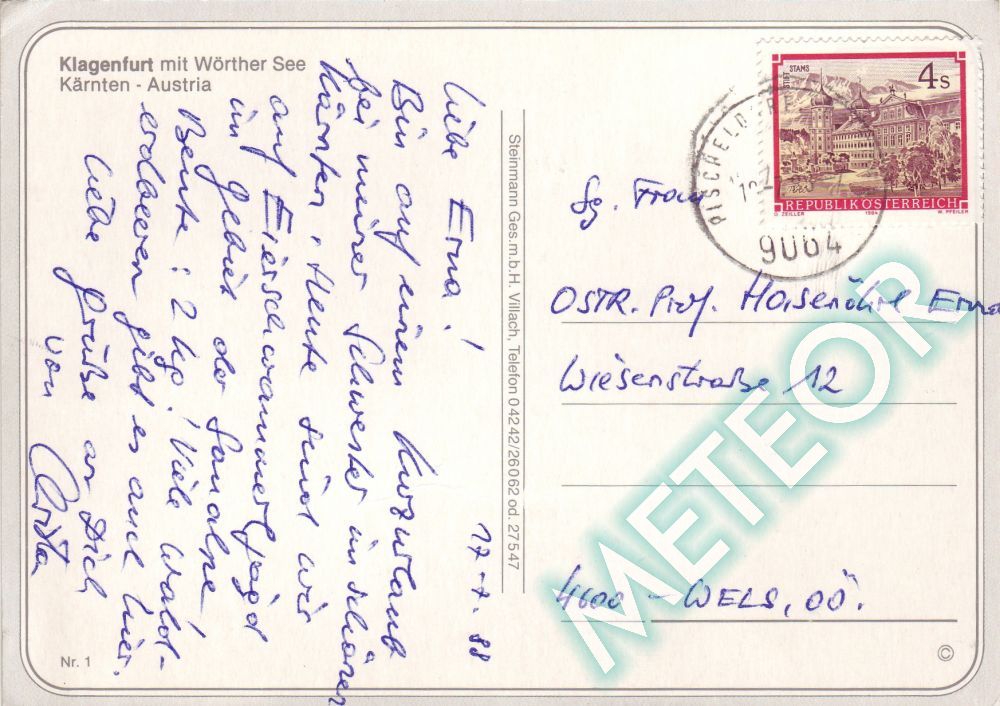 Klagenfurt mit Wörther See
Kärnten - Austria
17.7.88
Liebe Erna!
Bin auf einem Kurzurlaub
bei meiner Schwester im schönen
Kärnten. Heute sind wir
auf Eierschwammerljagd
im Gebiet der Saualpe
Beute: 2 kg! Viele Wald-
erdbeeren gibt es auch hier.
Liebe Grüße an Dich
von
Christa
Nr. 1
Steinmann Ges.m.b.H. Villach, Telefon 0 42 42/26062 od. 27547
STIFT STAMS
4 S
REPUBLIK ÖSTERREICH
O. ZEILLER 1984 W. PFEILER
PISCHELD
9064
Sg. Frau
OSTR. Prof. Haseröhrl Erna
Wiesenstraße 12
4600 - WELS, OÖ.
METEOR
©